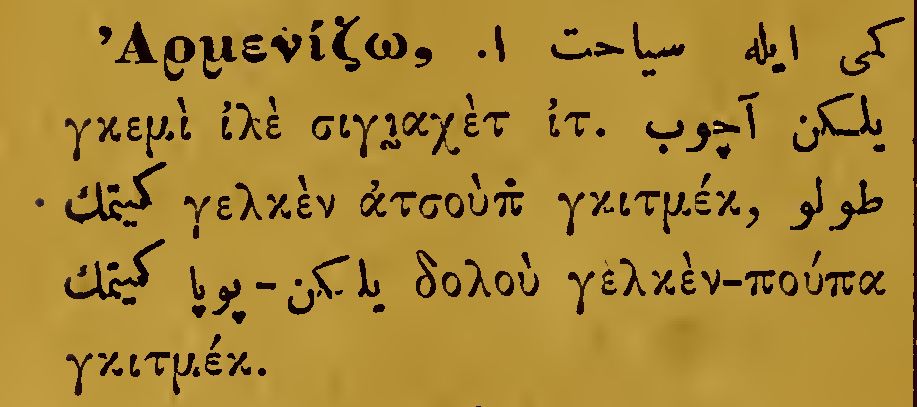 Ἀρμενίζω, كمى ايله سياحت ا.
γκεμὶ ἰλὲ σιγιαχὲτ ἰτ. يلكن آچوب
كيتمك γελκὲν ἀτσοὺπ̇ γκιτμέκ, طولو
يلكن-پوپا كيتمك δολοὺ γὲλκὲν-πούπα
γκιτμέκ.